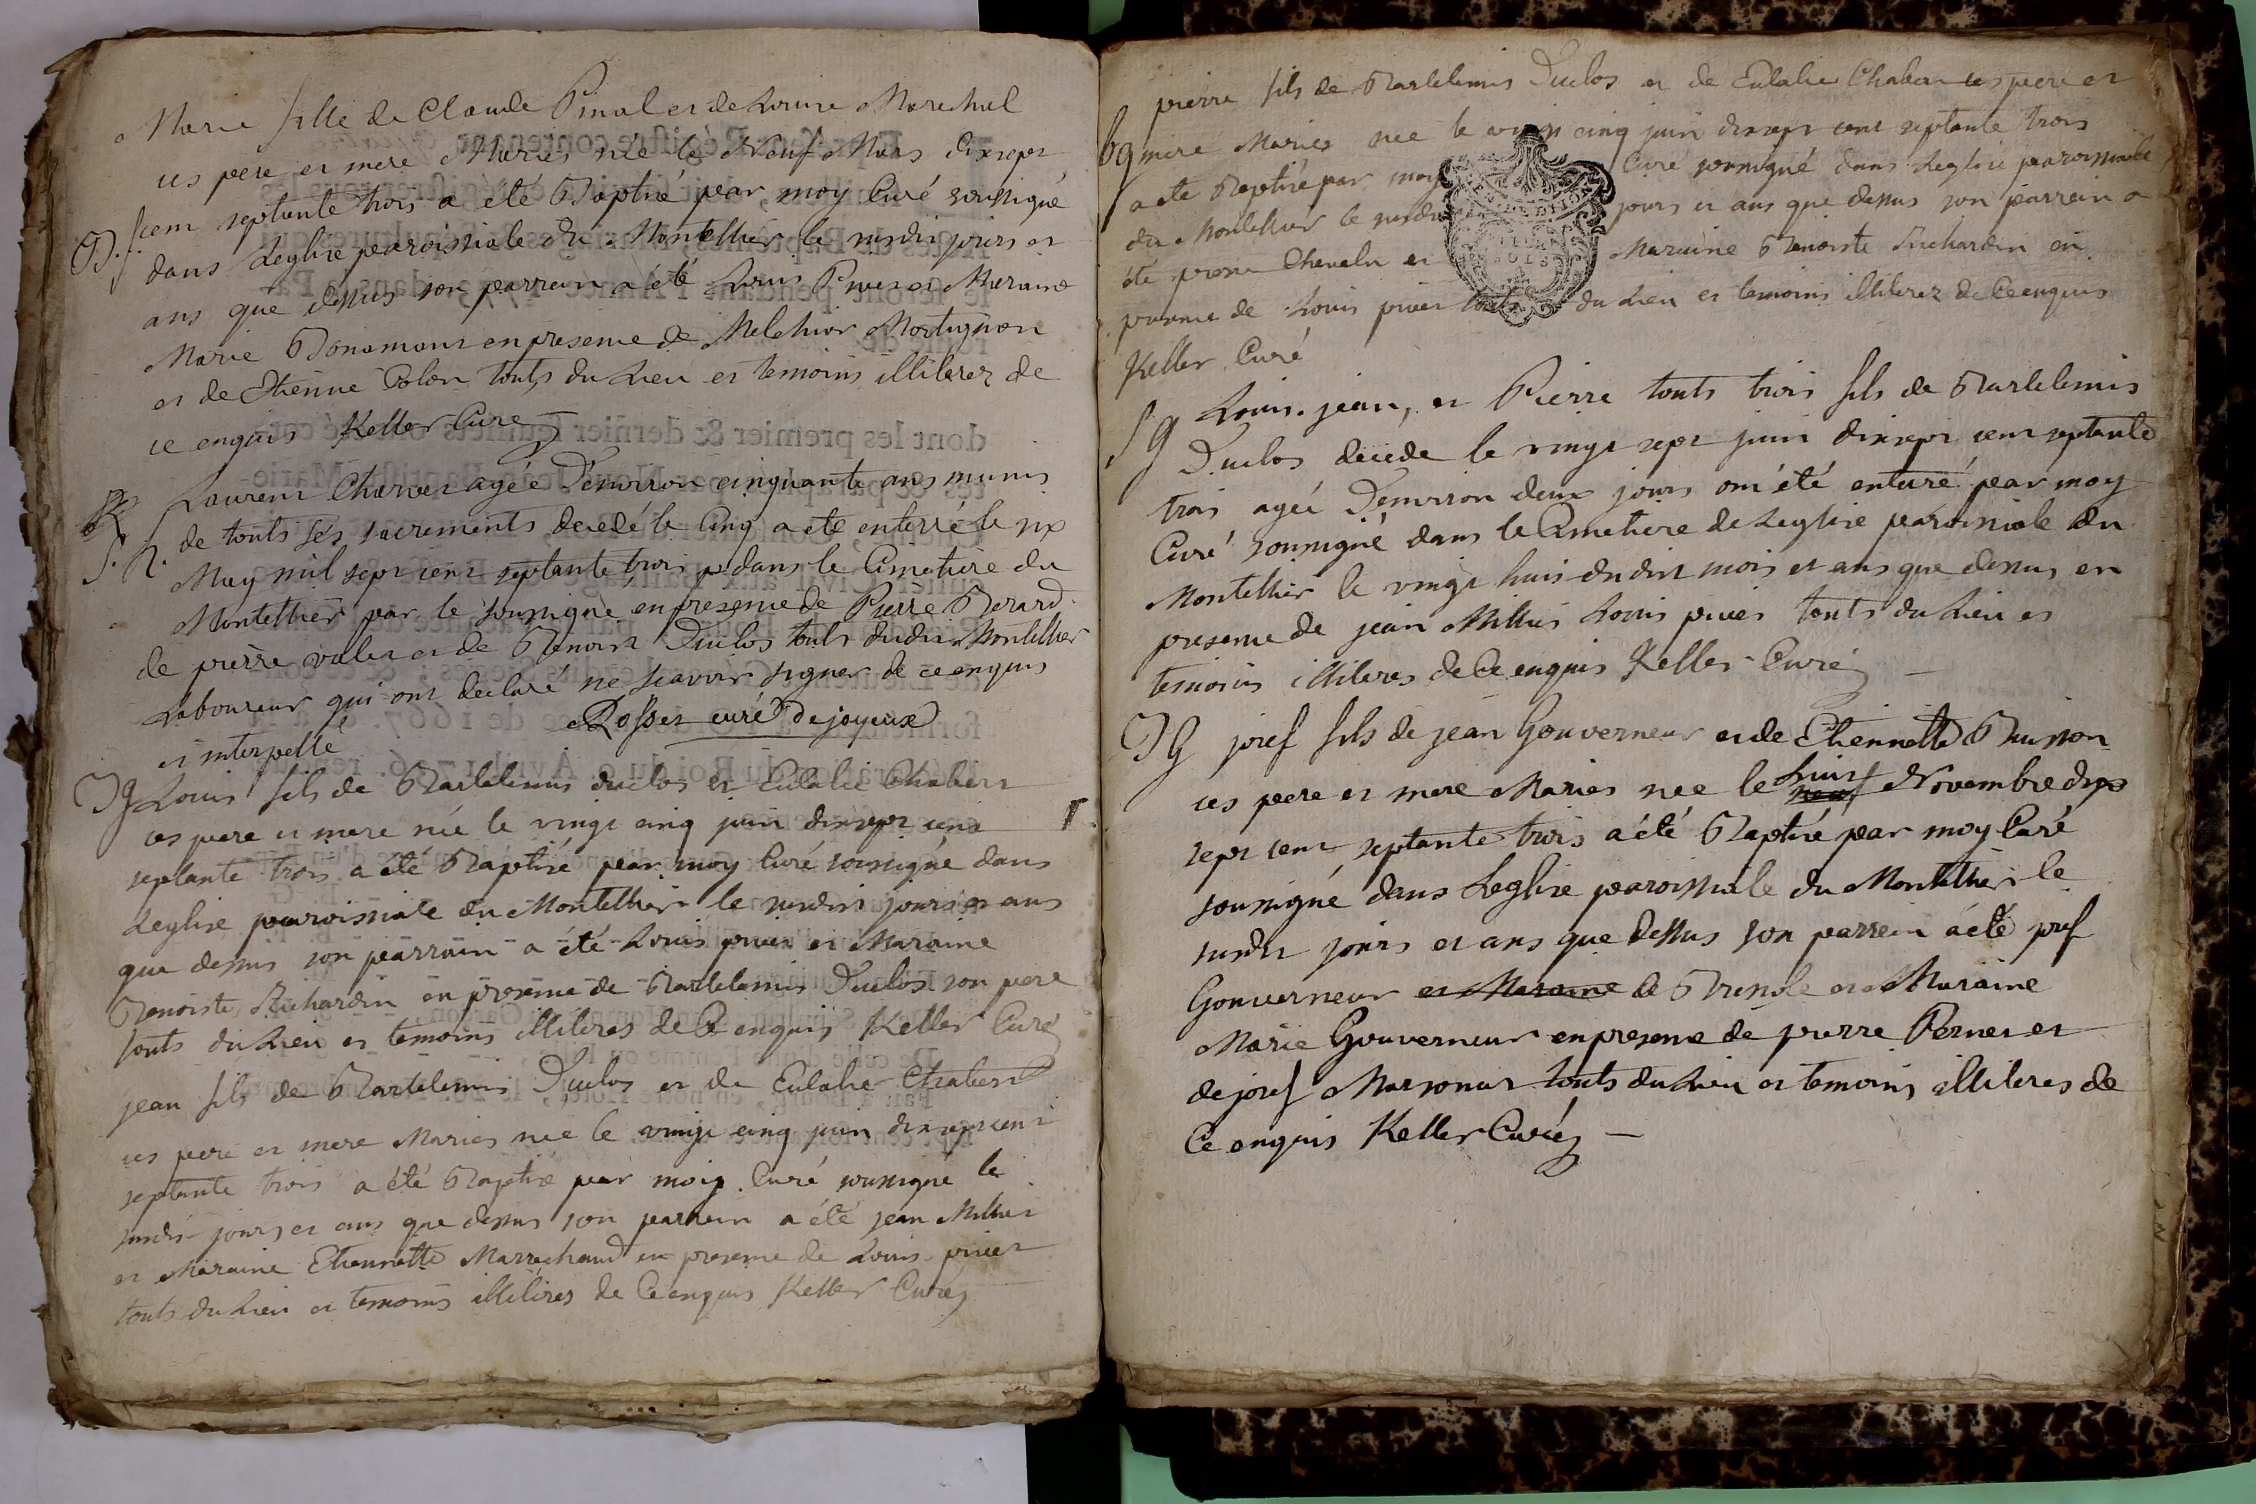 Marie fille de Claude Pinal et de Louise Marechal
ces pere et mere Mariés née le Neuf Mars dixsept
B. f. cent septante trois a été Baptisé par moy Curé soussigné
dans Leglise paroissiale du Montellier le susdit jours et
ans que dessus son parrain a été Louis et Maraine
Marie Bonamour en presence de Melchior Montagnon
et de Etienne Colon touts du Lieu et temoins illiterez de
ce enquis Keller Curé
Laurent Charvet agée D'environ cinquante ans munis
S. h. de touts ses sacrements decedé le Cinq a ete enterré le six
May mil sept cent septante trois dans le Cimetiere du
Montellier par le soussigné en presence de Pierre Berard
de pierre et de Benoist Duclos touts dudit Montellier
Laboureur qui ont declaré ne scavoir signer de ce enquis
et interpellé Rosset curé de joyeux
B g Louis fils de Bartelemis duclos et Eulalie Chabert
ces pere et mere née le vingt cinq juin dixsept cent
septante trois a été Baptisé par moy Curé soussigné dans
Leglise paroissiale du Montellier le susdit jours et ans
que dessus son parrain a été Louis privet et Maraine
Benoiste Richardin en presence de Bartelemis Duclos son pere
touts du Lieu et temoins illiteres de Ce enquis Keller Curé
jean fils de Bartelemis Duclos et de Eulalie Chabert
ces pere et mere Mariés née le vingt cinq juin dixsept cent
septante trois a été Baptisé par moy Curé soussigné le
susdit jours et ans que dessus son parrain a été jean Millet
et Maraine Etiennette Marrechand en presence de Louis privet
touts du Lieu et temoins illiteres de Ce enquis Keller Curé
pierre fils de Bartelemis Duclos et de Eulalie Chabert ces pere et
b g mere Mariés née le vingt cinq juin dixsept cent septante trois
a été Baptisé par moy Curé soussigné dans Leglise paroissiale
du Montellier le susdit jours et ans que dessus son parrain a
été Chevalu et Maraine Benoiste Richardin en
presence de Louis privet touts du Lieu et temoins illiterez de Ce enquis
Keller Curé
S g Louis. jean, et Pierre touts trois fils de Bartelemis
Duclos decede le vingt sept juin dixsept cent septante
trois agée D'environ deux jours ont été enterré par moy
Curé soussigné dans le Cimetiere de Leglise paroissiale du
Montellier le vingt huit dudit mois et ans que dessus en
presence de jean Millet Louis privet touts du Lieu et
temoins illiteres de Ce enquis Keller Curé
B g josef fils de jean Gouverneur et de Etiennette Buisson
ces pere et mere Mariés née le huit neuf Novembre dix
sept cent septante trois a été Baptisé par moy Curé
soussigné dans Leglise paroissiale du Montellier le
susdit jours et ans que dessus son parrein a été josef
Gouverneur et Maraine de et Maraine
Marie Gouverneur en presence de pierre Pernet et
de josef Marsonat touts du Lieu et temoins illiteres de
Ce enquis Keller Curé